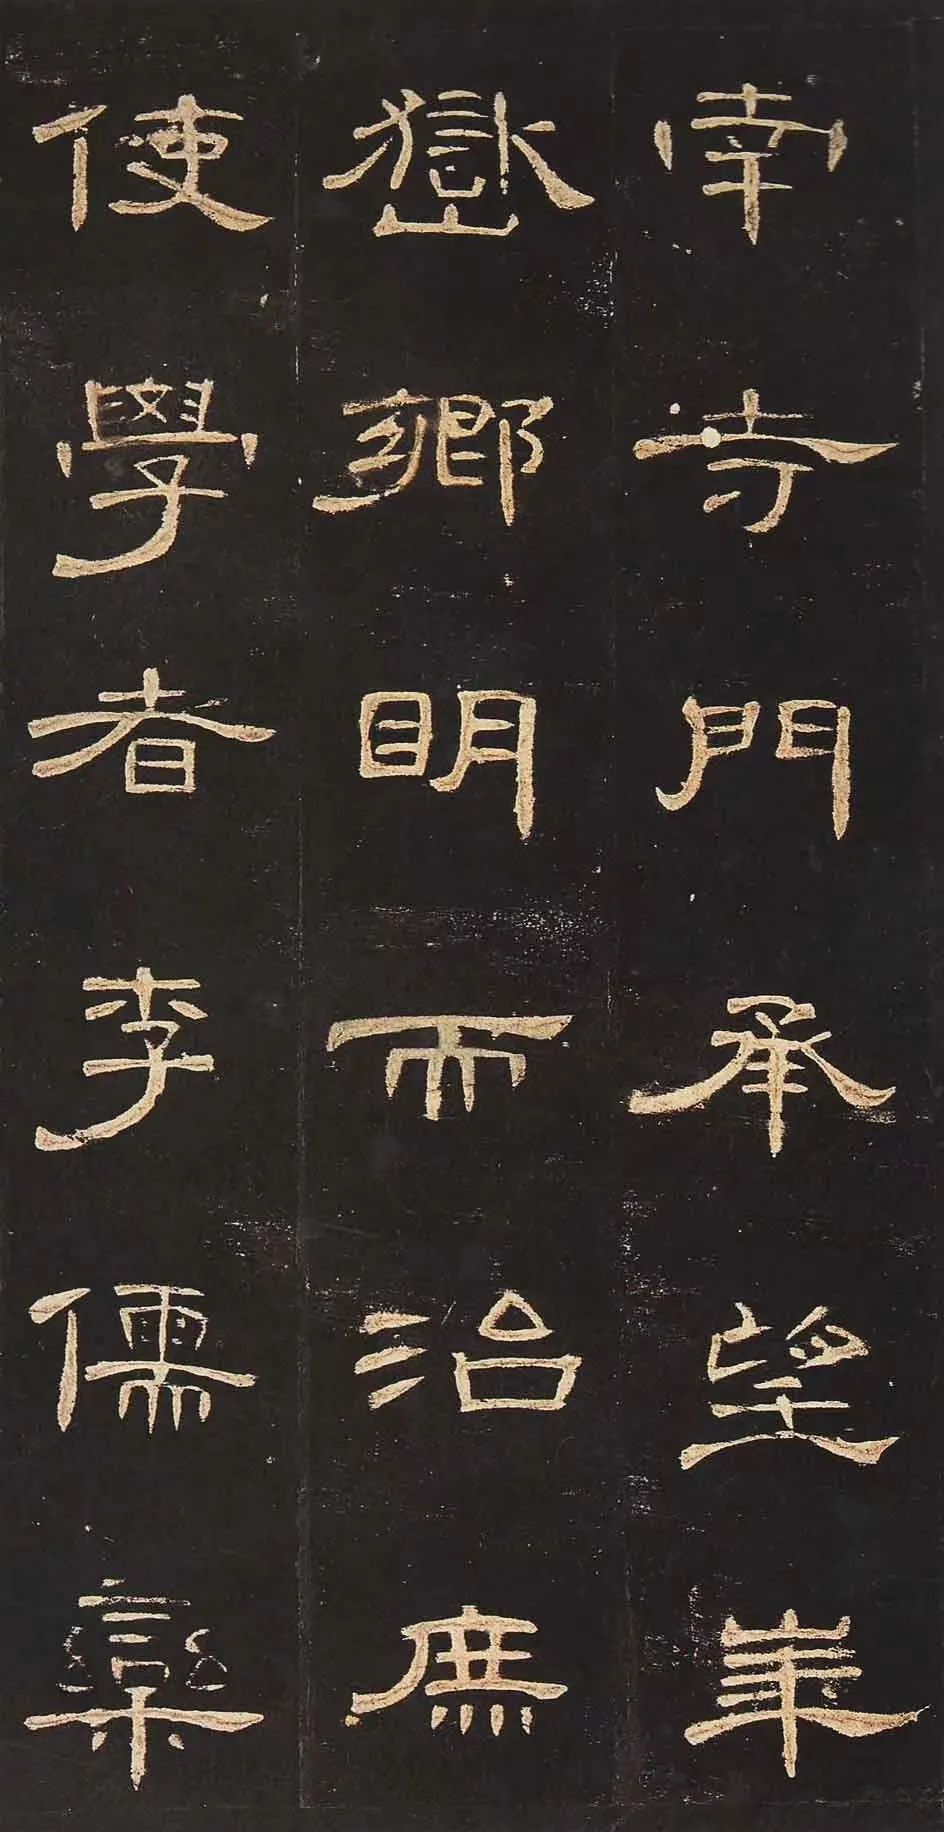 南寺門承望華
嶽鄉明而治庶
使學者李儒欒